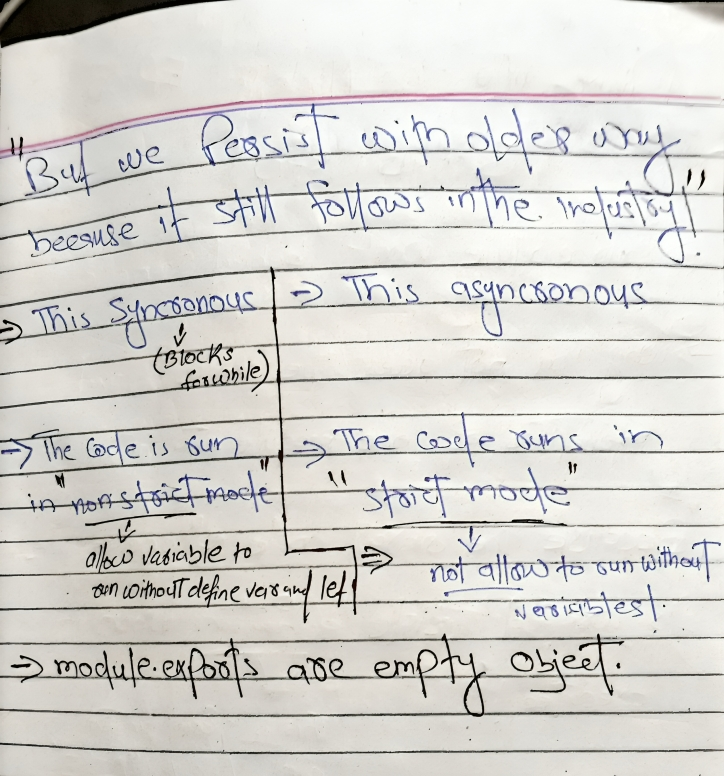 "But we Persist with older way
becsuse it still follows in the industry!"
=> This Syncronous
(Blocks
for while)
=> The Code is run
in "non strict mode"
allow variable to
run without define var and let
=> This asyncronous
=> The code runs in
"strict mode"
=> not allow to run without
variables!.
=> module.exports are empty object.